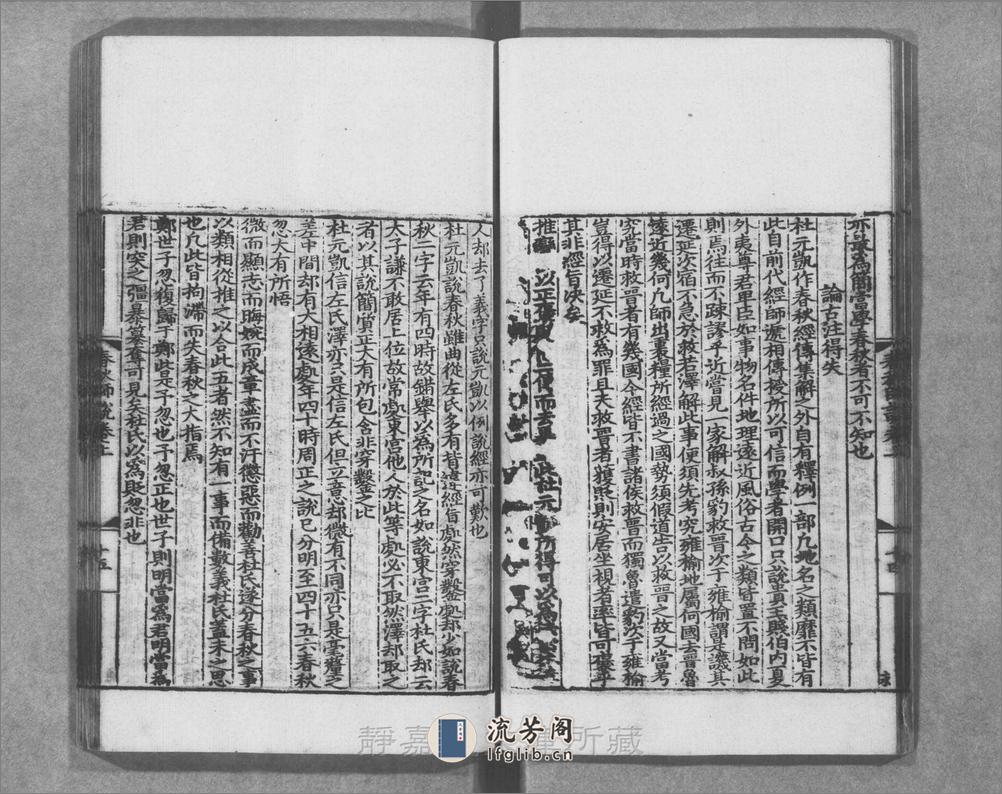 亦最爲爾當學春秋者不可不知也
論古注得失
杜元凱作春秋經傳集解之外自有釋例一部凡地名之類靡不皆有
此自前代經師遞相傳授所以可信而學者開口只說貴王賤伯内夏
外夷尊君卑臣如事物名件地理遠近風俗古今之類皆置不問如此
則焉往而不踈謬乎近嘗見一家解叔孫豹救晉次于雍榆謂是譏其
遷延次宿不急於救若澤解此事便須先考究雍榆地屬何國去晉魯
遠近幾何凡師出裹糧所經過之國勢須假道告以救晉之故又當考
究當時救晉者有幾國今經皆不書諸侯救晉而獨魯遣豹次于雍榆
豈得以遷延不救為罪且夫救晉者獲罪則安居坐視者率皆可褒乎
其非經旨決矣
推 以正 杜元 所得可以為
人却去了義字只說元凱以例說經亦可歎也
杜元凱說春秋雖曲從左氏多有背違經旨處然穿鑿處却少如說春
秋二字云年有四時故錯舉以為所記之名如說東宫二字杜氏却云
太子謙不敢居上位故常處東宫他人於此等處必不取然澤却取之
者以其說簡質正大有所包含非穿鑿之比
杜元凱信左氏澤亦只是信左氏但立意却微有不同亦只是毫釐之
差中間却有大相遠處年四十時周正之說已分明至四十五六春秋
忽大有所悟
微而顯志而晦婉而成章盡而不汙懲惡而勸善杜氏遂分春秋之事
以類相從推之以合此五者然不知有一事而備數義杜氏蓋未之思
也凡此皆拘滯而失春秋之大指焉
鄭世子忽復歸于鄭此是子忽也子忽正也世子則明當爲君明當爲
君則突之彊暴篡奪可見矣杜氏以爲貶忽非也
春秋師說卷上
十五
靜嘉 所藏
流芳阁
lfglib.cn